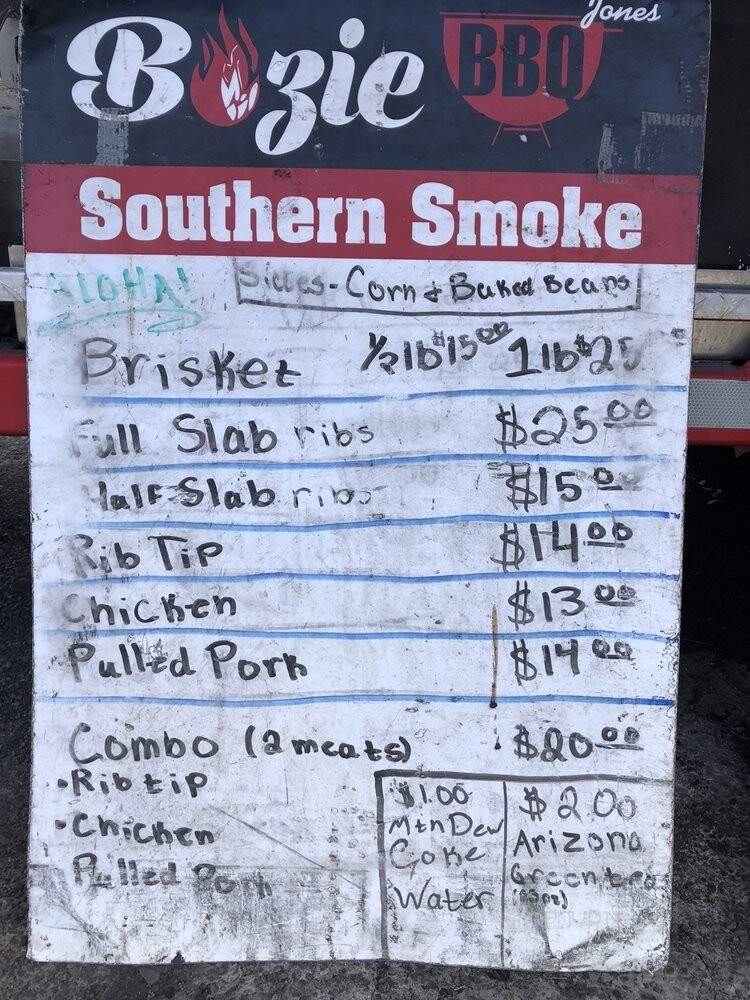 Jones
Bozie BBQ
Southern Smoke
ALOHA!
Sides - Corn & Baked Beans
Brisket 1/2 lb $15.00 1 lb $25
Full Slab ribs $25.00
Half Slab ribs $15.0
Rib Tip $14.00
Chicken $13.00
Pulled Pork $14.00
Combo (2 meats) $20.00
• Rib tip
• Chicken
Pulled Pork
$1.00
Mtn Dew
Coke
Water
$2.00
Arizona
Green tea